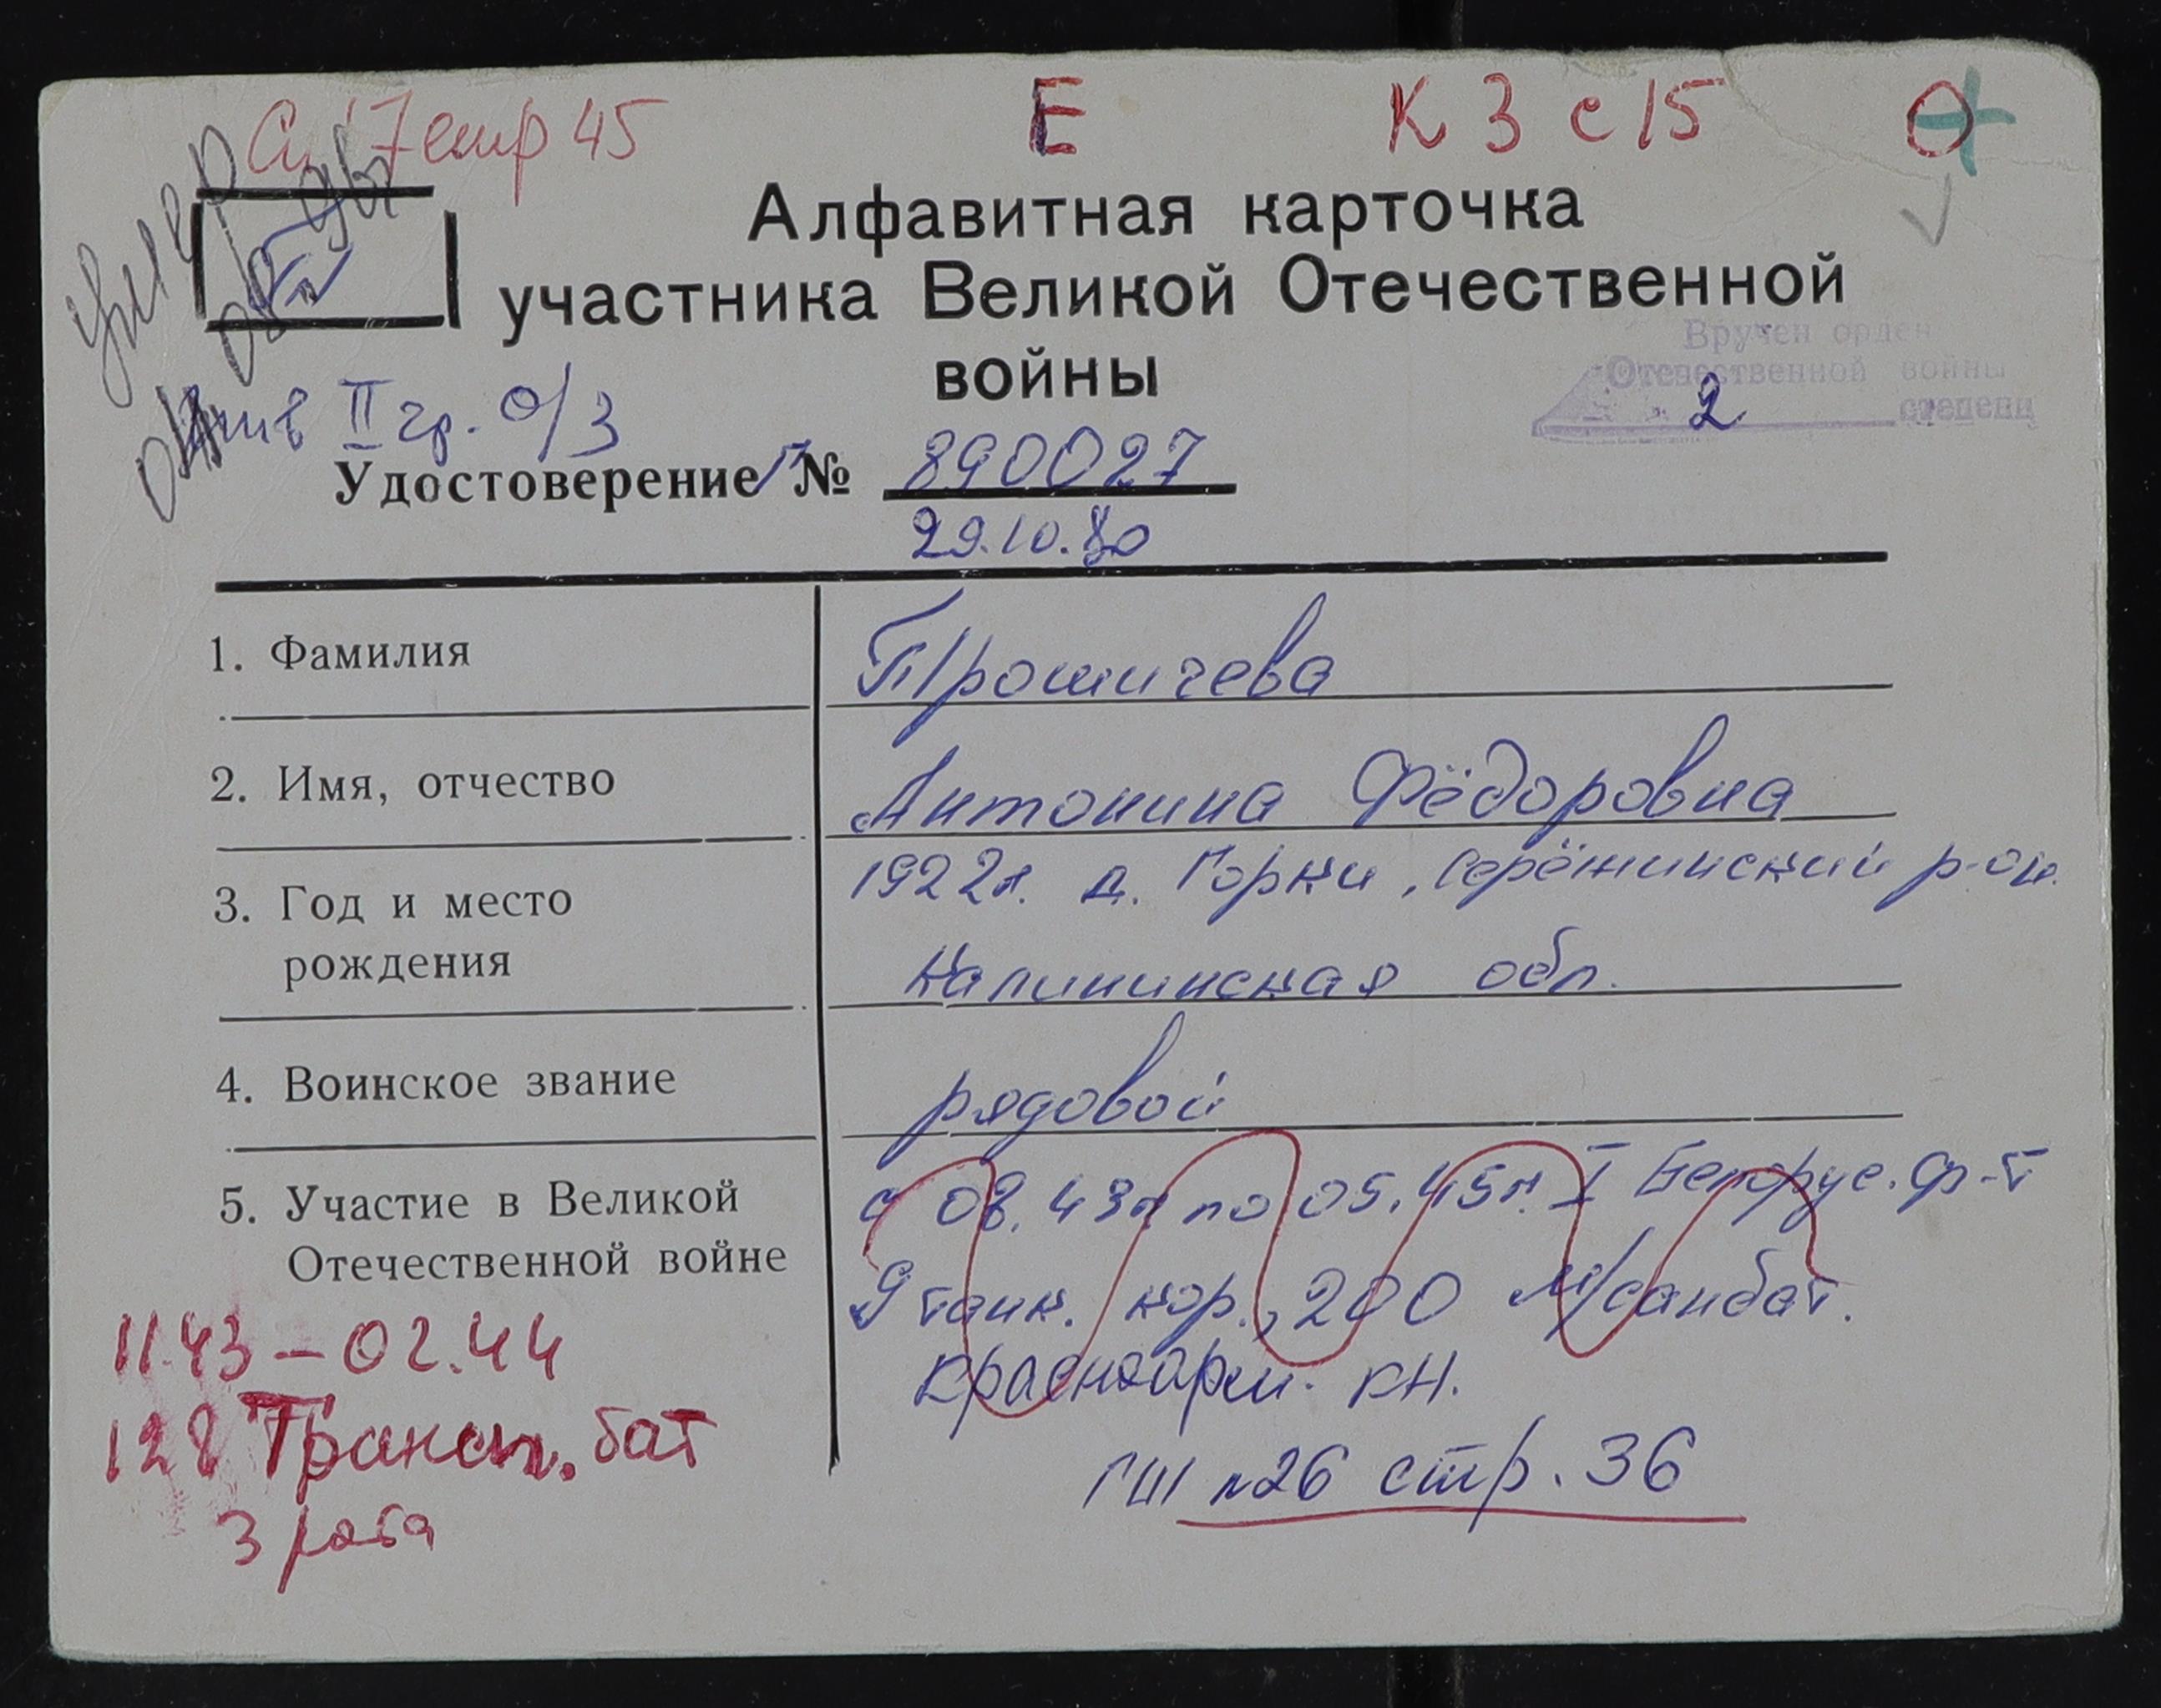 стр 45 Е К 3 с 15
умер
Алфавитная карточка
участника Великой Отечественной
войны
Вручен орден
Отечественной войны
2 степени
инв II гр. о/з
Удостоверение № 890027
29.10.80
1. Фамилия Трошичева
2. Имя, отчество Антонина Фёдоровна
3. Год и место рождения 1922г. д. Горки, Серёжинский р-он.
Калининская обл.
4. Воинское звание рядовой
5. Участие в Великой Отечественной войне с 08.43г по 05.45г. I Белорус. ф-т
9 танк. кор., 200 м/санбат.
Красноарм. кн.
ГШ №26 стр. 36
11.43 – 02.44
128 Трансп. бат
3 рота